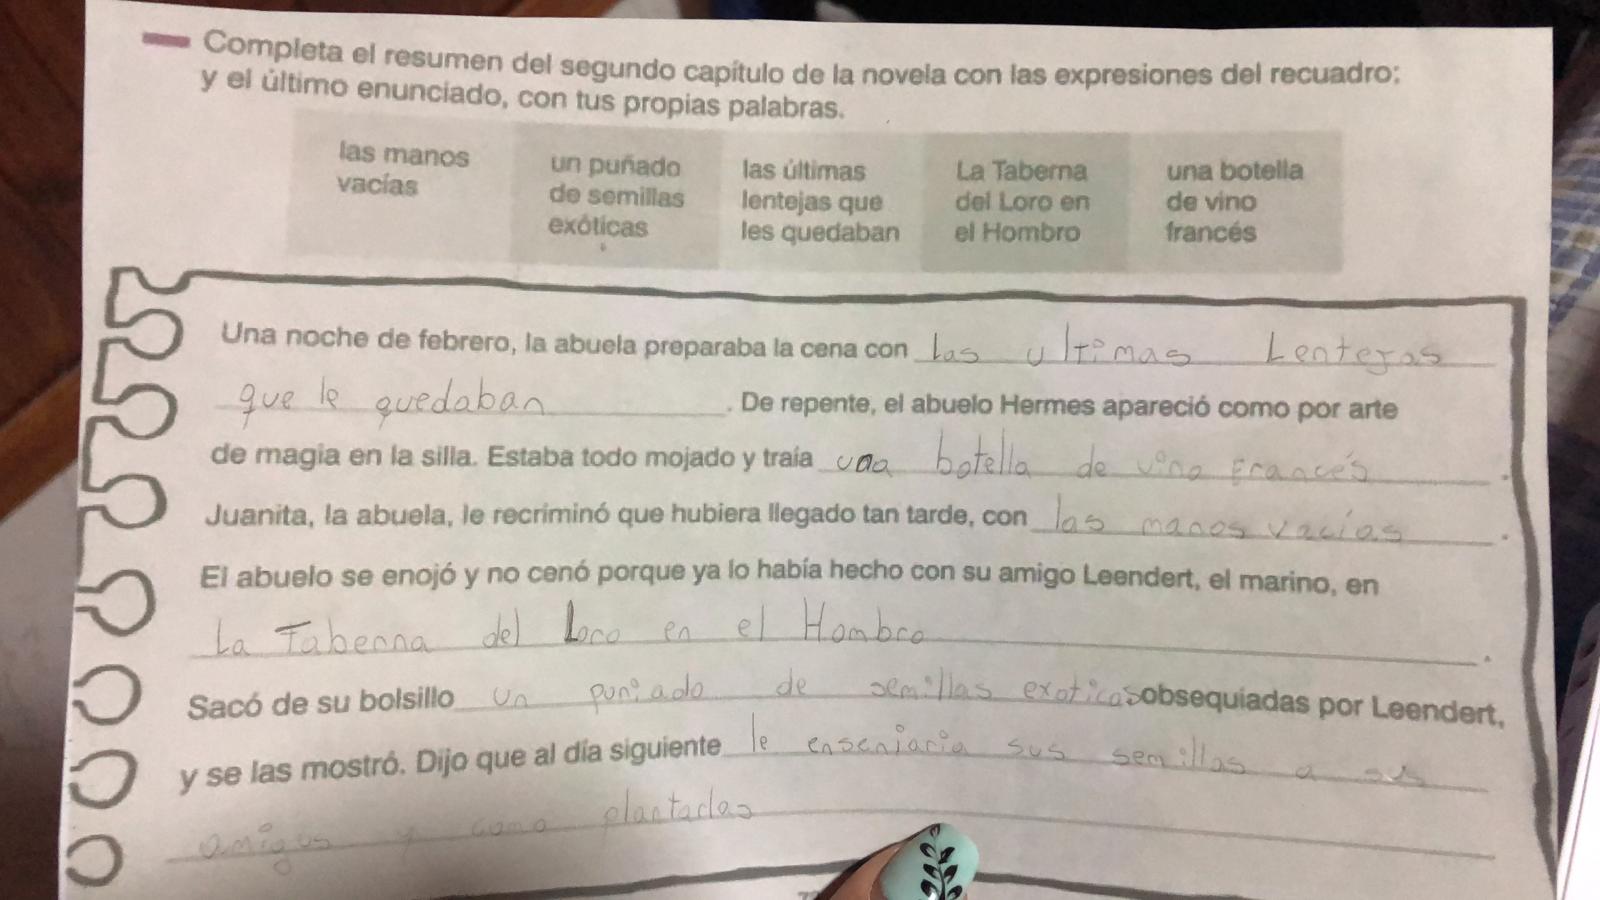 Completa el resumen del segundo capítulo de la novela con las expresiones del recuadro;
y el último enunciado, con tus propias palabras.
las manos
vacías
un puñado
de semillas
exóticas
las últimas
lentejas que
les quedaban
La Taberna
del Loro en
el Hombro
una botella
de vino
francés
Una noche de febrero, la abuela preparaba la cena con las ultimas Lentejas
que le quedaban. De repente, el abuelo Hermes apareció como por arte
de magia en la silla. Estaba todo mojado y traía una botella de vino Francés.
Juanita, la abuela, le recriminó que hubiera llegado tan tarde, con las manos vacías.
El abuelo se enojó y no cenó porque ya lo había hecho con su amigo Leendert, el marino, en
La Taberna del Loro en el Hombro.
Sacó de su bolsillo un puniado de semillas exoticas obsequiadas por Leendert,
y se las mostró. Dijo que al día siguiente le enseniaria sus semillas a sus
amigos y como plantarlas